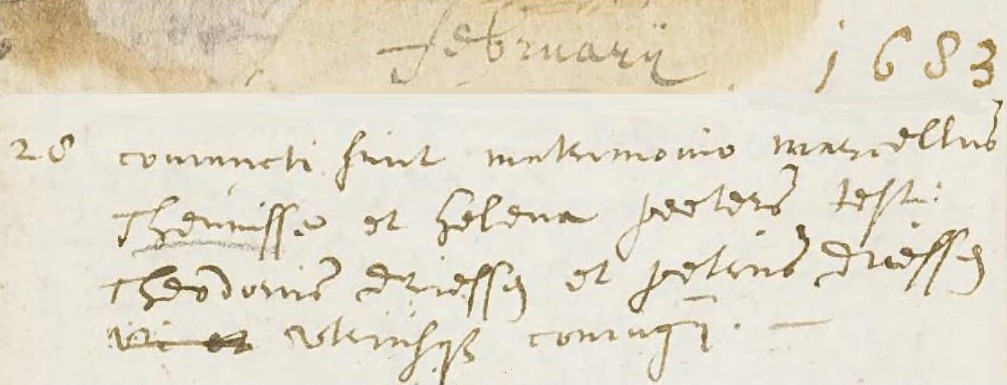 february 1683
28 coniuncti sunt matrimonio marcellus
Theunisse et helena peeters testi:
Theodorus driessen et petrus driessen
utriusque coniugij. —